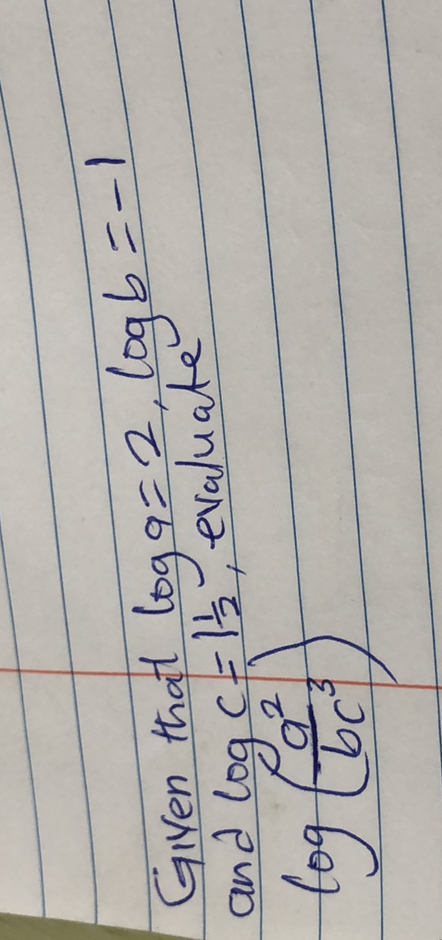 Given that log a = 2, log b = -1
and log c = 1½, evaluate
log (a²/bc³)